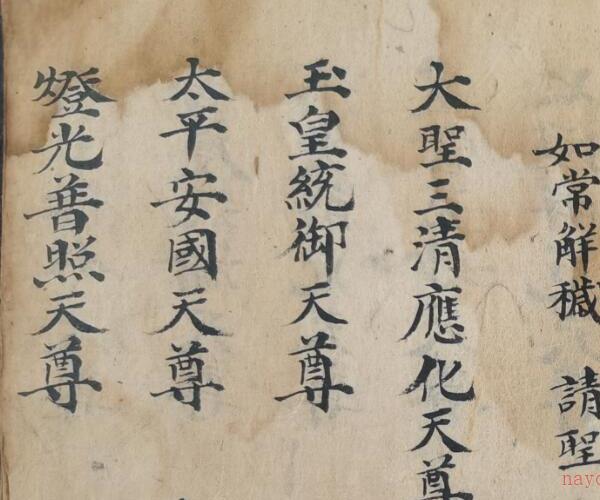 如常解穢　請聖
大聖三清應化天尊
玉皇統御天尊
太平安國天尊
燈光普照天尊